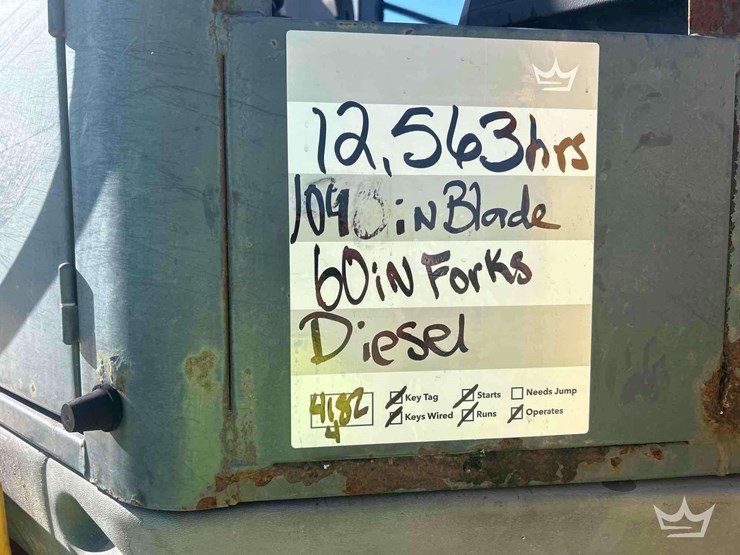 12,563hrs
iN Blade
60iN Forks
Diesel
4182
4
Key Tag
Starts
Needs Jump
Keys Wired
Runs
Operates